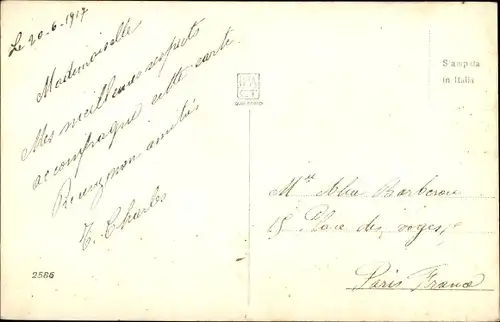 Le 20-6-1917
Mademoiselle
Mes meilleurs respects
accompagne cette carte.
Recevez mon amitiés
T. Charles
2586
Stampata
in Italia
Mlle Alice Barberou
15 Place des Voges
Paris France